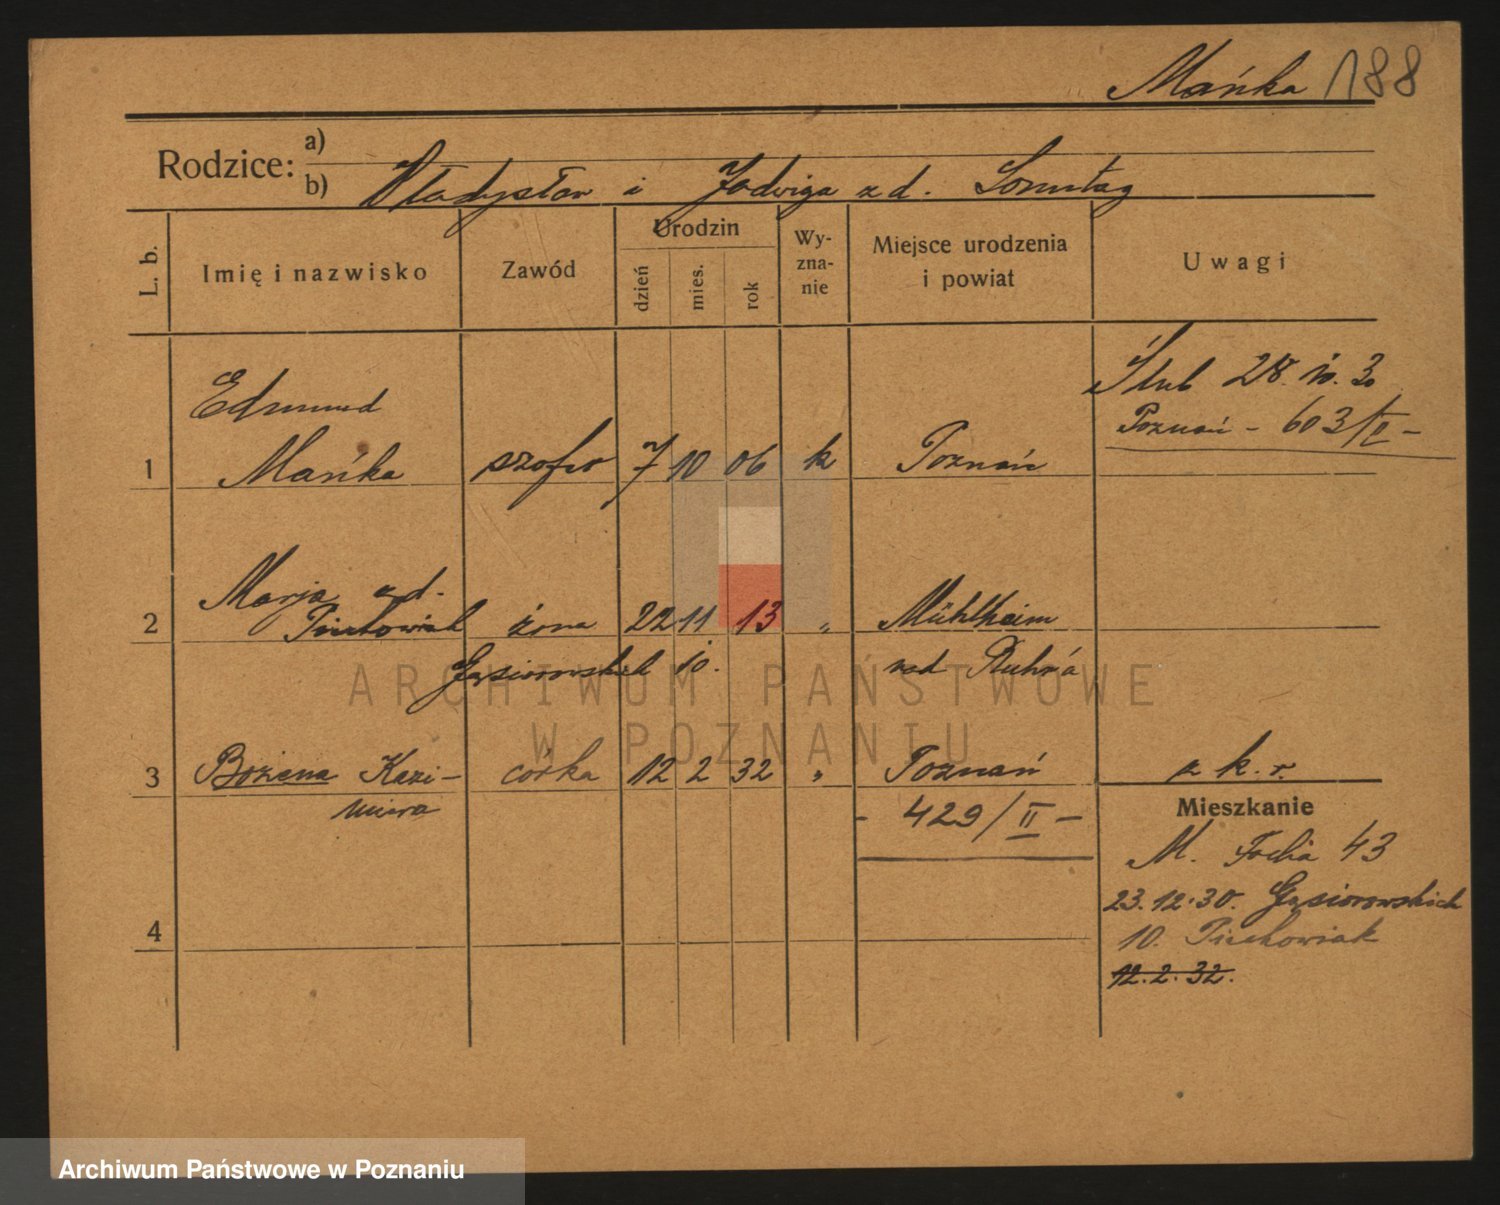 Mańka 188
Rodzice: a)
b) Władysław i Jadwiga z d. Sonntag
L. b.
Imię i nazwisko
Zawód
Urodzin
dzień
mies.
rok
Wy-
zna-
nie
Miejsce urodzenia
i powiat
Uwagi
Ślub 28. 10. 30
Poznań - 603/II -
Edmund
1 Mańka szofer 7 10 06 k Poznań
Marja z d.
2 Piechowiak żona 22 11 13 „ Mühlheim
Gąsiorowskich 10. nad Ruhrą
3 Bożena Kazi- córka 12 2 32 „ Poznań z k. r.
miera - 429/II -
Mieszkanie
M. Focha 43
23.12.30. Gąsiorowskich
4 10. Piechowiak
12.2.32.
ARCHIWUM PAŃSTWOWE
W POZNANIU
Archiwum Państwowe w Poznaniu